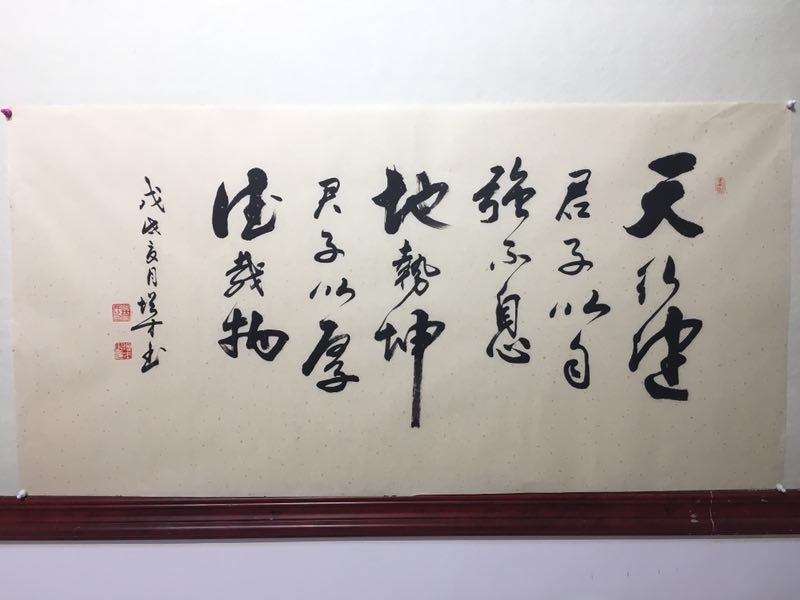 天行健
君子以自
强不息
地勢坤
君子以厚
德载物
戊戌夏月 书